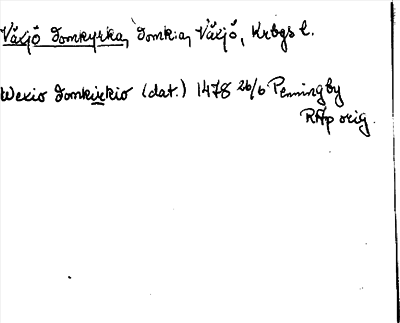 Växjö Domkyrka, Domk:a, Växjö, Krbgs l.
Wexio Domkirkio (dat.) 1478 26/6 Penningby
RAp orig.